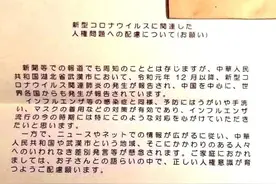 新型コロナウイルスに関連した
人権問題への配慮について（お願い）
新聞等での報道でも周知のこととは存じますが、中華人民共
和国湖北省武漢市において、令和元年12月以降、新型コ
ロナウイルス関連肺炎の発生が報告され、中国を中心に、世
界各国からも発生が報告されています。
インフルエンザ等の感染症と同様、予防にはうがいや手洗
い、マスクの着用などの対策が有効であり、インフルエンザ
流行の今の時期には特にこのような対応を心がけていただき
たいと思います。
一方で、ニュースやネットでの情報が広がるに従い、中華
人民共和国や武漢市という地域、そこにかかわりのある人々
へのいわれなき差別発言等が懸念されます。ご家庭におかれ
ましては、お子さんとの語らいの中で、正しい人権意識が育
つようご配慮願います。